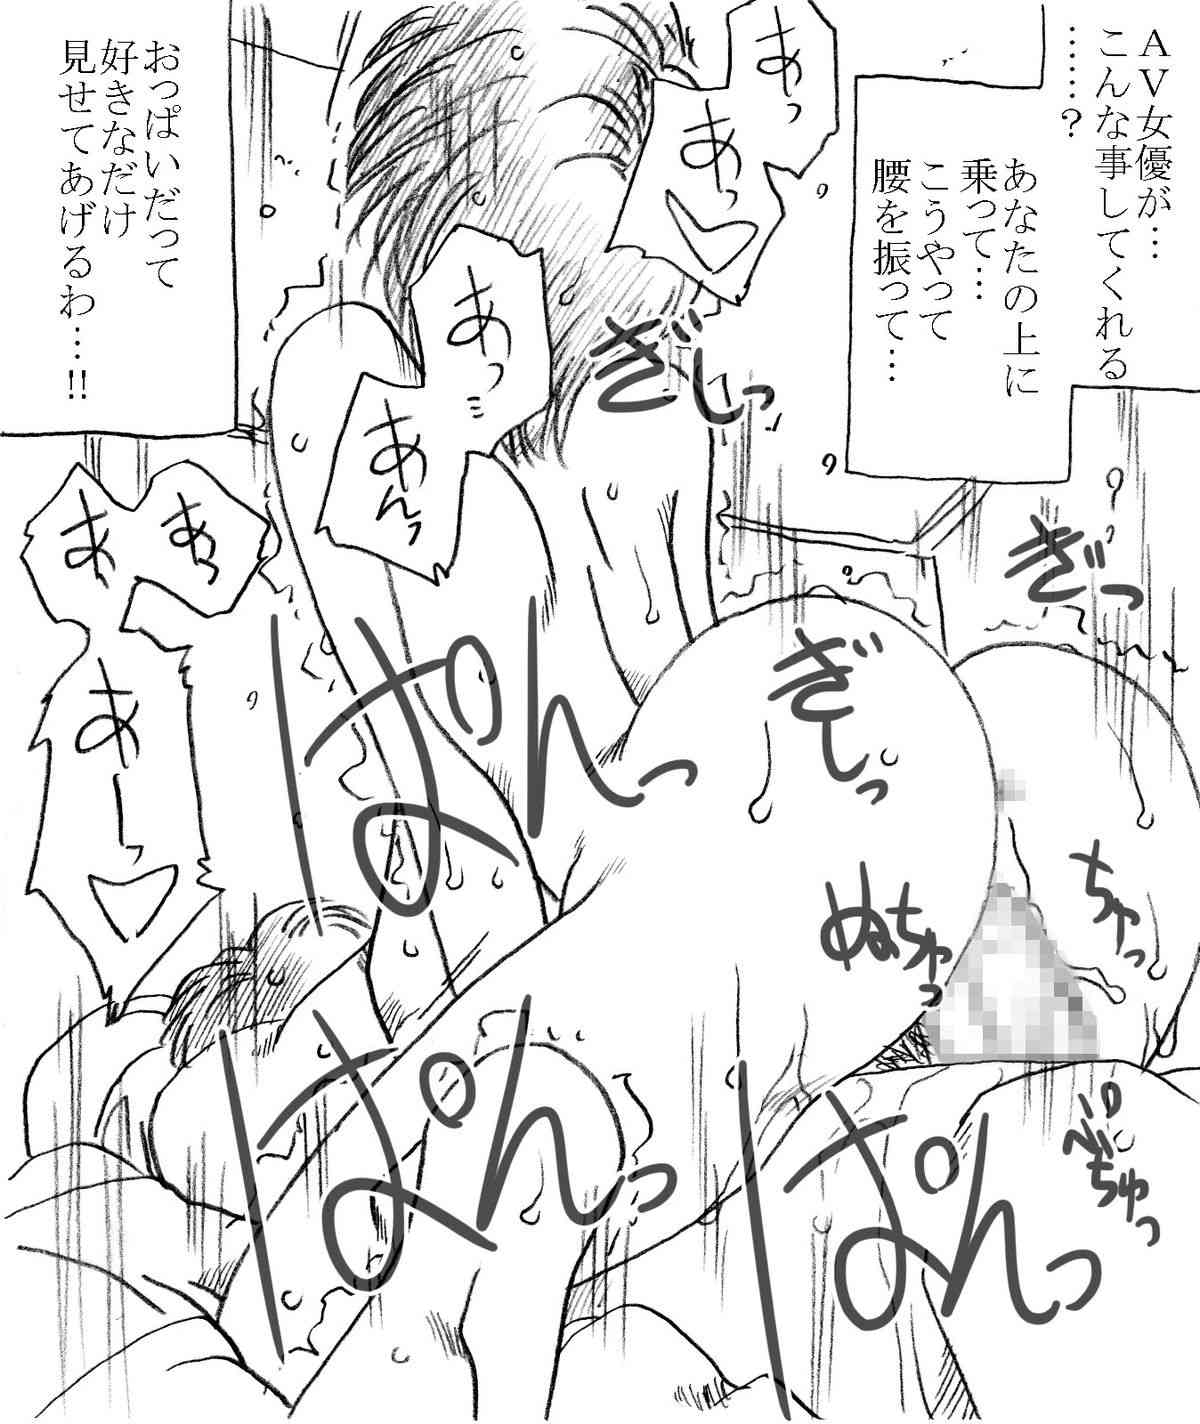 ＡＶ女優が…
こんな事してくれる
……？
あなたの上に
乗って…
こうやって
腰を振って…
あっ
あっ
あっ
あんっ
ぎしっ
ぎっ
ぎしっ
おっぱいだって
好きなだけ
見せてあげるわ…!!
あっ
あっ
あーっ
ぱんっ
ぬちゅっ
ちゅっ
ぱんっ
ぱんっ
ぺちゅっ